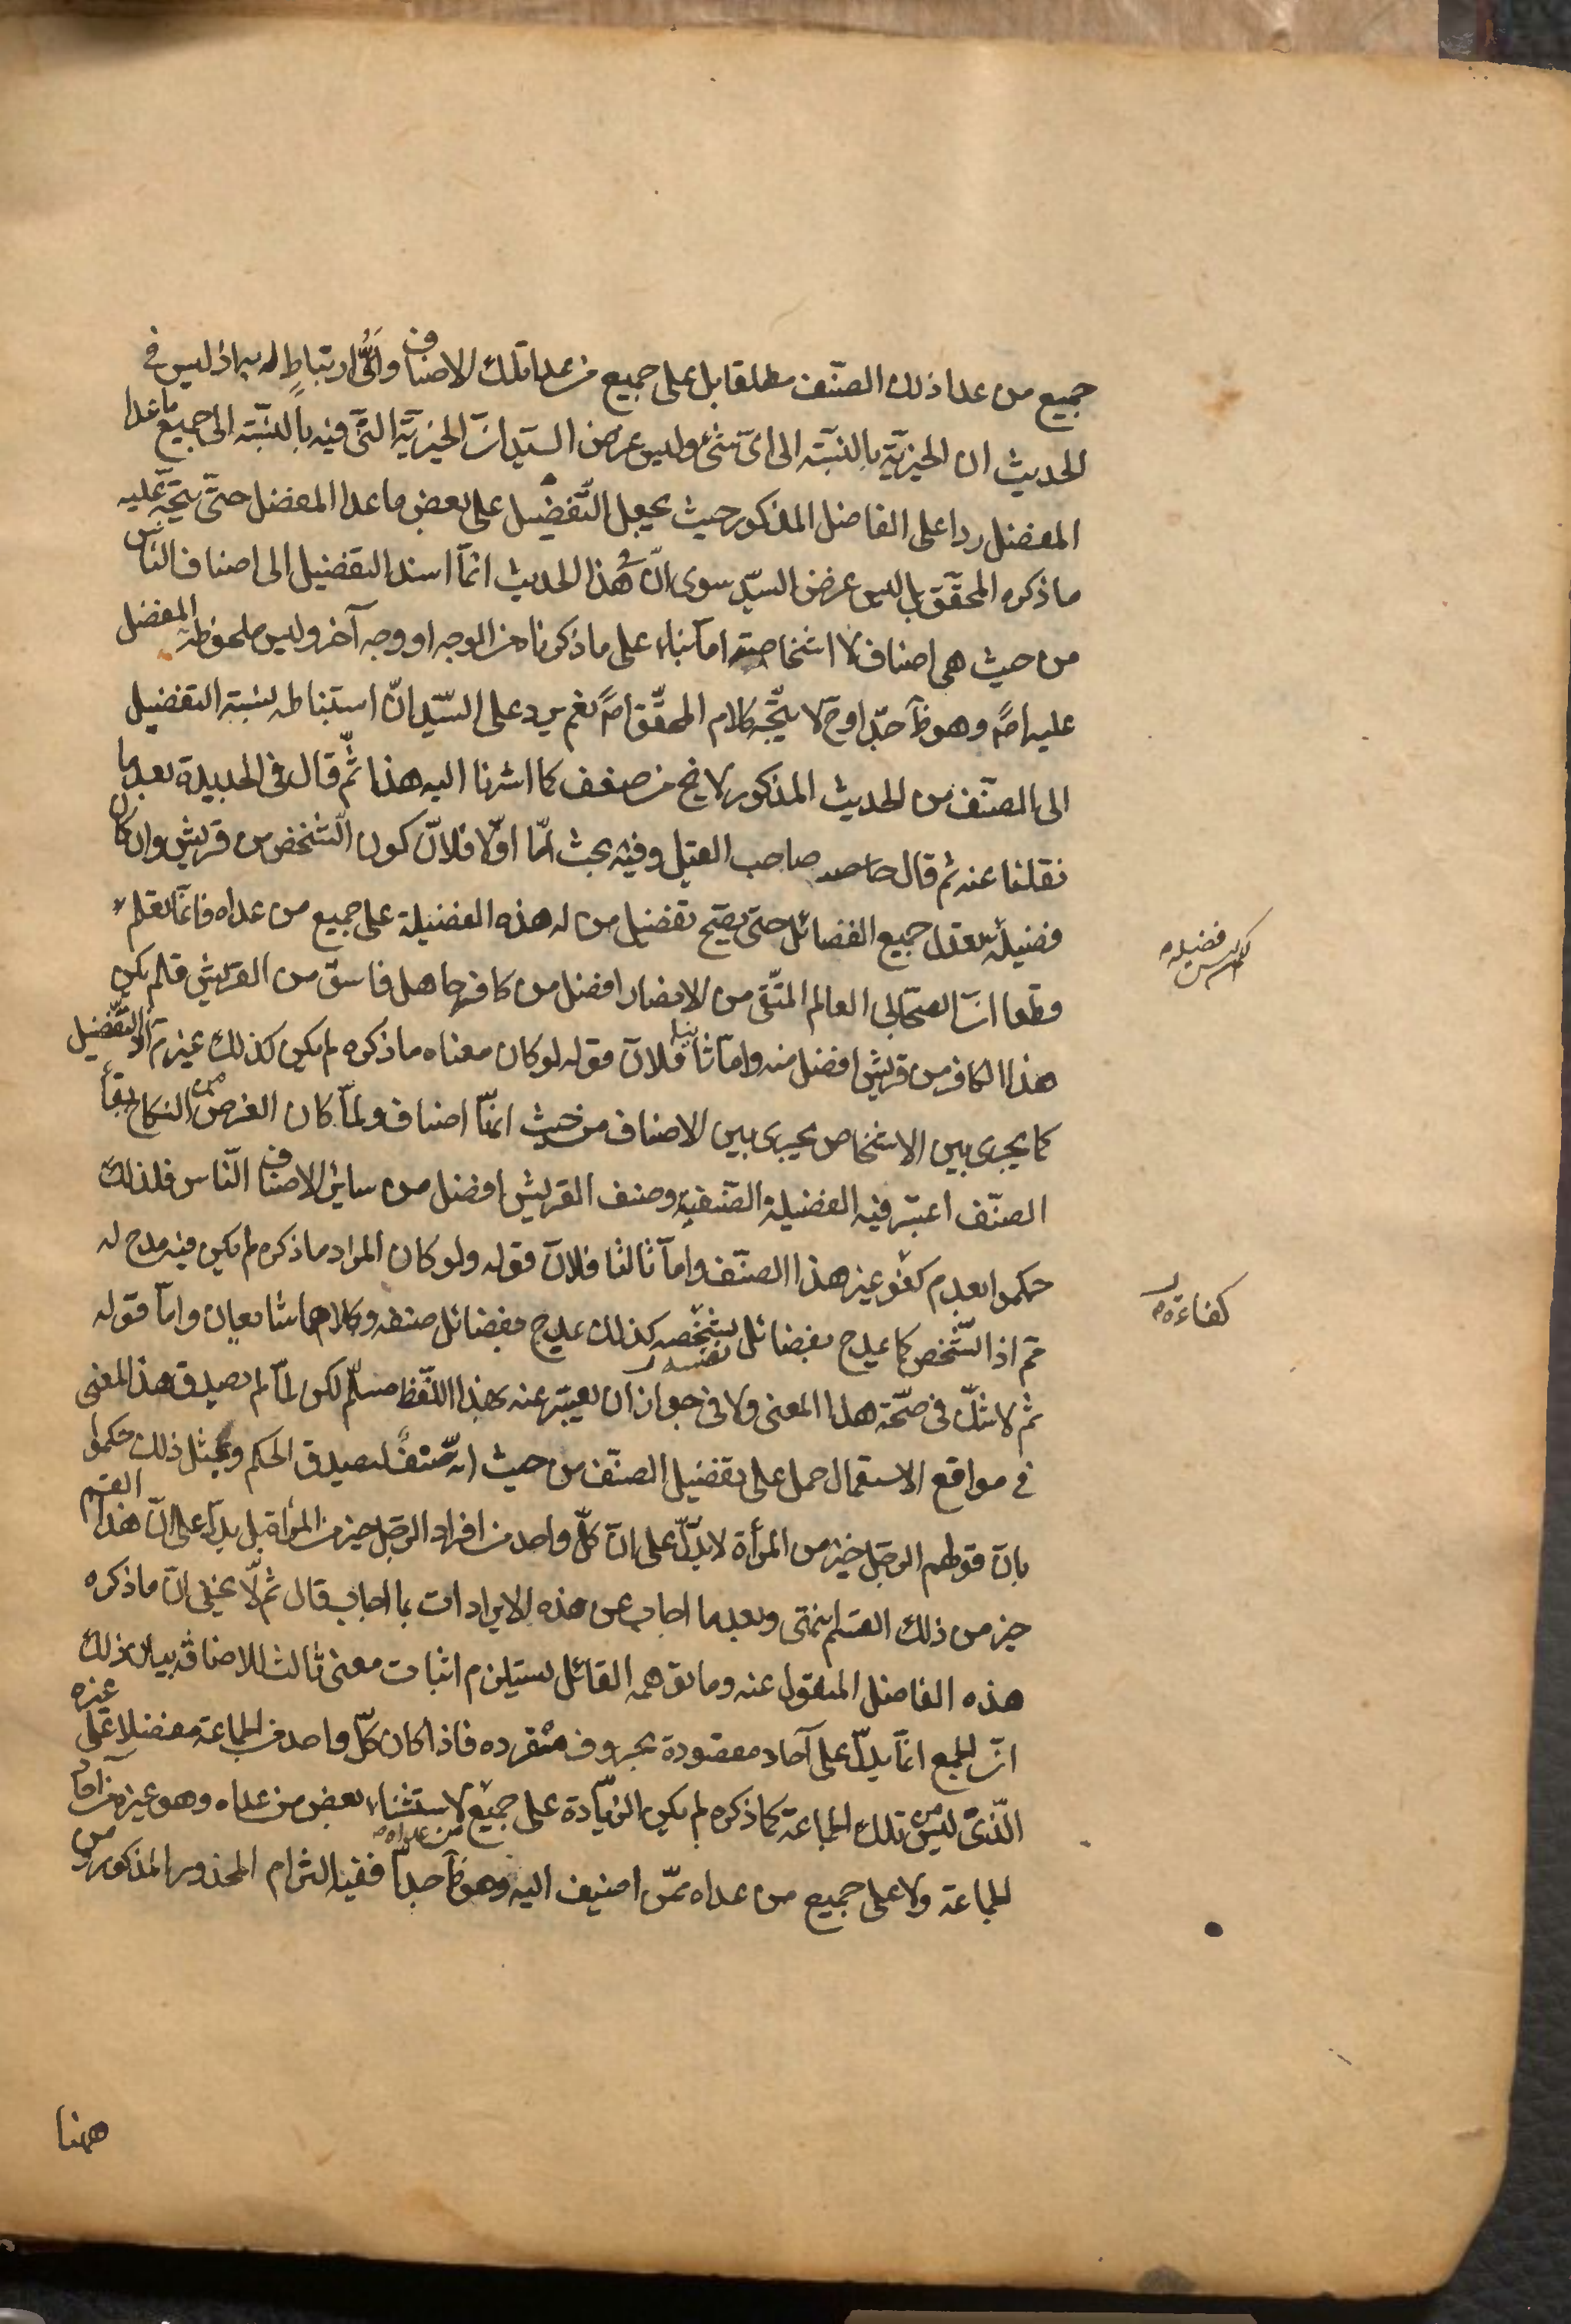 جميع من عدا ذلك الصنّف مطلقا بل على جميع من عدا تلك الاصناف واَنّى ارتباطٍ له به اذ ليس فى
الحديث ان الخيريّة بالنسبة الى اىّ شئ وليس غرض السيّد انّ الخيريّة التى فيه بالنسبة الى جميع ما عدا
المفضل ردا على الفاضل المذكور حيث يجعل التّفضيل على بعض ما عدا المفضل حتّى يتّجه عليه
ما ذكره المحقّق بل ليس غرض السيّد سوى انّ هذا الحديث انّما اسند التفضيل الى اصناف الناس
من حيث هى اصناف لا اشخاصه امّا بناء على ما ذكرنا من الوجه او وجه آخر وليس ملحوظه المفضل
عليه اصً وهو ظ جدّا وح لا يتّجه كلام المحقّق اصً نعم يرد على السّيد انّ استنباطه لنسبة التفضيل
الى الصنّف من الحديث المذكور لا يخ من ضعف كما اشرنا اليه هذا ثمّ قال فى الجديدة بعد ما
نقلنا عنه ثم قال صاحب القيل وفيه بحث امّا اوّلا فلانّ كون الشخص من قريش وان كان
فضيلة تعدل جميع الفضائل حتى يصحّ تفضيل من له هذه الفضيلة على جميع من عداه فانّا نعلم
قطعا انّ الصحابى العالم المتّقى من الانصار افضل من كافر جاهل فاسق من القريش فلم يكن
هذا الكافر من قريش افضل منه وامّا ثانيا فلانّ قوله لو كان معناه ما ذكره لم يكن كذلك غير تم لانّ التفضيل
كما يجرى بين الاشخاص يجرى بين الاصناف من حيث انّها اصناف ولمّا كان الغرض من النكاح بقاء
الصنّف اعتبر فيه الفضيلة الصنفية وصنف القريش افضل من سائر الاصناف النّاس فلذلك
حكموا بعدم كفو غير هذا الصنّف وامّا ثالثا فلانّ قوله ولو كان المراد ما ذكره لم يكن فيه مدح له
تم اذ الشّخص كما يمدح بفضائل بشخصه كذلك يمدح بفضائل صنفه وكلاهما شايعان وامّا قوله
نفسه
ثم لا شكّ فى صحّة هذا المعنى ولا فى جواز ان يعبّر عنه بهذا اللّفظ مسلّم لكن لمّا لم يصدق هذا المعنى
فى مواقع الاستعمال حمل على تفضيل الصنّف من حيث انّه صنفٌ ليصدق الحكم وبمثل ذلك حكموا
بانّ قولهم الرجل خير من المرأة لا يدلّ على انّ كلّ واحد من افراد الرجل خير من المرأة بل يدلّ على انّ هذا القسم
خير من ذلك القسم انتهى وبعد ما اجاب عن هذه الايرادات بما اجاب قال ثم لا يخفى انّ ما ذكره
هذه الفاضل المنقول عنه وما توهمه القائل يستلزم اثبات معنى ثالث للاضافة بيان ذلك
انّ الجمع انّما يدلّ على آحاد مقصودة بحروف مفرده فاذا كان كلّ واحد من الجماعة مفضلا على غيره
الّذى ليس من تلك الجماعة كما ذكره لم يكن الزيّادة على جميع من عداه لاستثناء بعض من عداه وهو غيره من آحاد
الجماعة ولا على جميع من عداه ممّن اضيف اليه وهو ظ جدّا ففيه التزام المحذور المذكور من
ههنا
فضيله
كفاءة